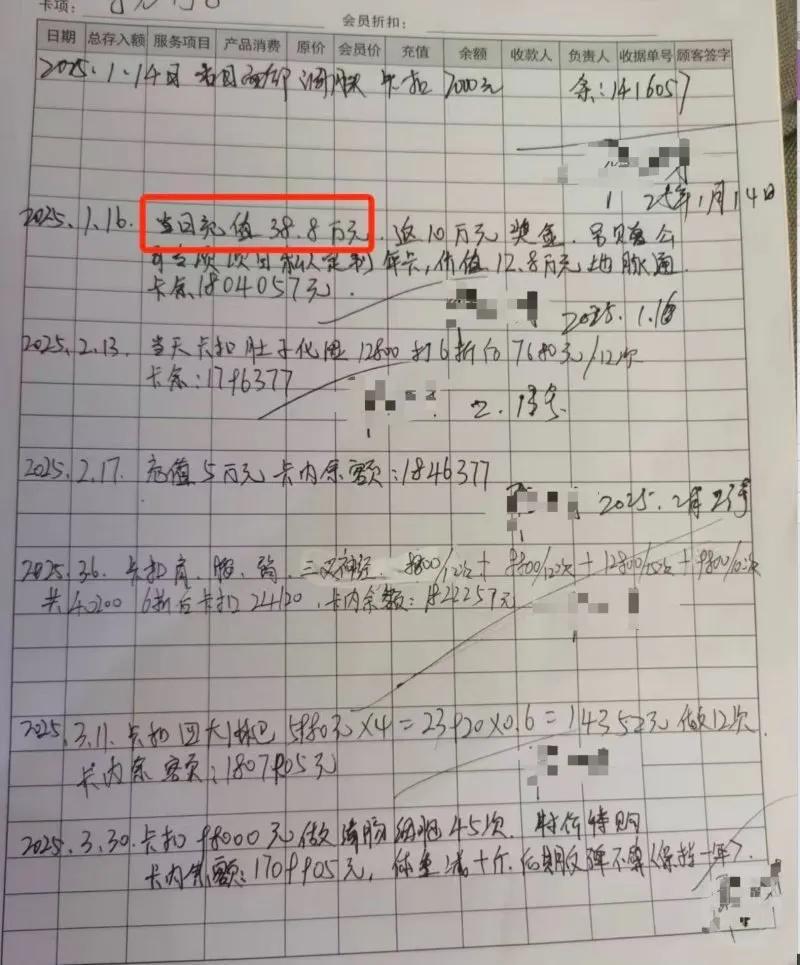 卡项：
会员折扣：
日期 总存入额 服务项目 产品消费 原价 会员价 充值 余额 收款人 负责人 收据单号 顾客签字
2025.1.14日 卡扣 7000元 余：1416057
1月14日
2025.1.16. 当日充值38.8万元，返10万元奖金.
年卡，价值12.8万元地脉通
卡余1804057元.
2025.1.16
2025.2.13. 当天卡扣肚子化湿12800打6折后7680元/12次
卡余：1796377
2.13号
2025.2.17. 充值5万元卡内余额：1846377
2025.2月23号
2025.3.6. 卡扣肩、腸、三叉神经. 9800/12次+9800/12次+
共40200 6折后卡扣24120，卡内余额：1822257元
2025.3.11. 卡扣四大淋巴5980元×4=23920×0.6=14352元做12次.
卡内余额：1807905元
2025.3.30. 卡扣98000元做 45次. 特价特购
卡内余额：1709905元，体重减十斤.后期反弹不算（保持一年）.